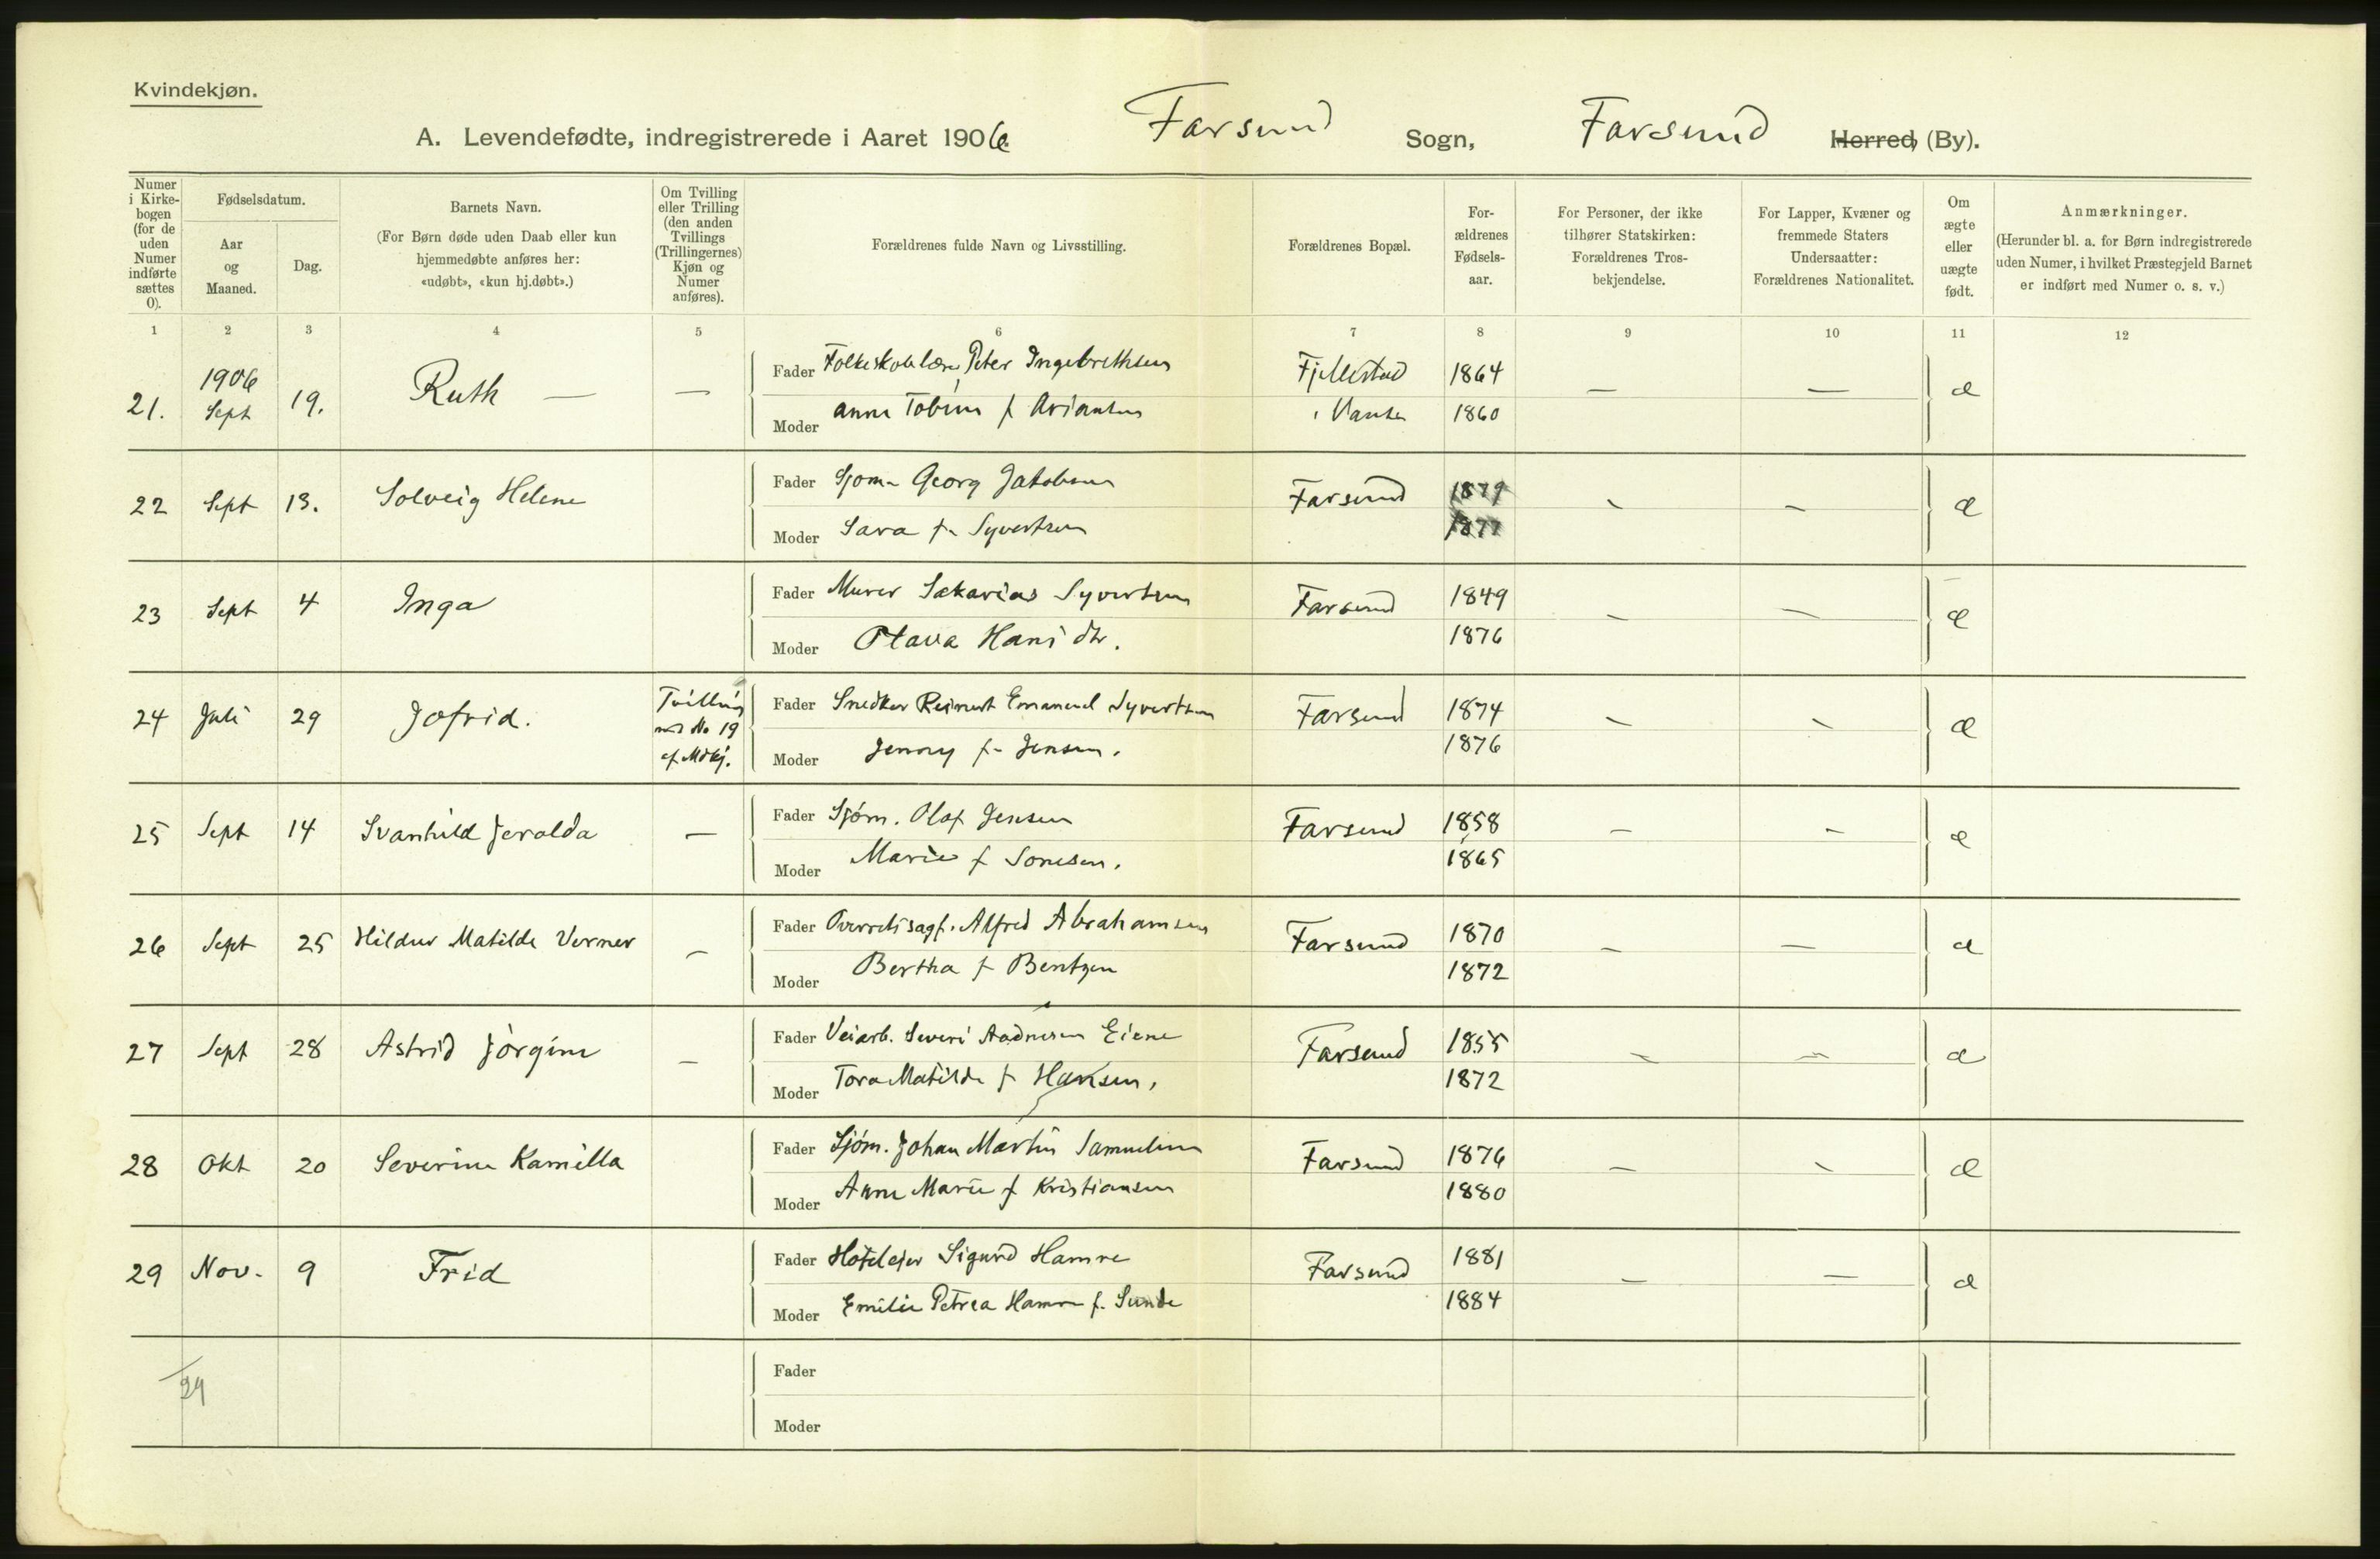 Kvindekjøn.
A. Levendefødte, indregistrerede i Aaret 1906. Farsund Sogn, Farsund Herred, (By).
Numer i Kirkebogen (for de uden Numer indførte sættes 0).
Fødselsdatum.
Aar og Maaned.
Dag.
Barnets Navn.
(For Børn døde uden Daab eller kun hjemmedøbte anføres her: «udøbt», «kun hj.døbt».)
Om Tvilling eller Trilling (den anden Tvillings (Trillingernes) Kjøn og Numer anføres).
Forældrenes fulde Navn og Livsstilling.
Forældrenes Bopæl.
For-
ældrenes
Fødsels-
aar.
For Personer, der ikke
tilhører Statskirken:
Forældrenes Tros-
bekjendelse.
For Lapper, Kvæner og
fremmede Staters
Undersaatter:
Forældrenes Nationalitet.
Om
ægte
eller
uægte
født.
Anmærkninger.
(Herunder bl. a. for Børn indregistrerede
uden Numer, i hvilket Præstegjeld Barnet
er indført med Numer o. s. v.)
1 2 3 4 5 6 7 8 9 10 11 12
21. 1906 Sept 19. Ruth — — Fader Folkeskolelærer Peter Ingebrethsen Fjellestad 1864 — — æ
Moder Anna f. i Vanse 1860
22 Sept 13. Solveig Helene Fader Sjøm. Georg Jakobsen Farsund 1879 - - æ
Moder Sara f. Syvertsen 1877
23 Sept 4 Inga Fader Murer Sakarias Syvertsen Farsund 1849 - - æ
Moder Otava Hans dtr. 1876
24 Juli 29 Jofrid. Tvilling med No 19 af Mdkj. Fader Snedker Reinert Emanuel Syvertsen Farsund 1874 - - æ
Moder Jenny f. Jensen. 1876
25 Sept 14 Svanhild Jeralda — Fader Sjøm. Olaf Jensen Farsund 1858 - - æ
Moder Marie f. 1865
26 Sept 25 Hildur Matilde Verner - Fader Overretssagf. Alfred Abrahamsen Farsund 1870 - - æ
Moder Bertha f. Bentzen 1872
27 Sept 28 Astrid Jørgine - Fader Veiarb. Severi Aadnesen Eiene Farsund 1855 - - æ
Moder Tora Matilde f. Hansen. 1872
28 Okt 20 Severine Kamilla Fader Sjøm. Johan Martin Samuelsen Farsund 1876 - - æ
Moder Anne Marie f. Kristiansen 1880
29 Nov. 9 Frid Fader Hoteleier Sigurd Hamre Farsund 1881 - - æ
Moder Emilie Petrea Hamre f. Sunde 1884
29
Fader
Moder